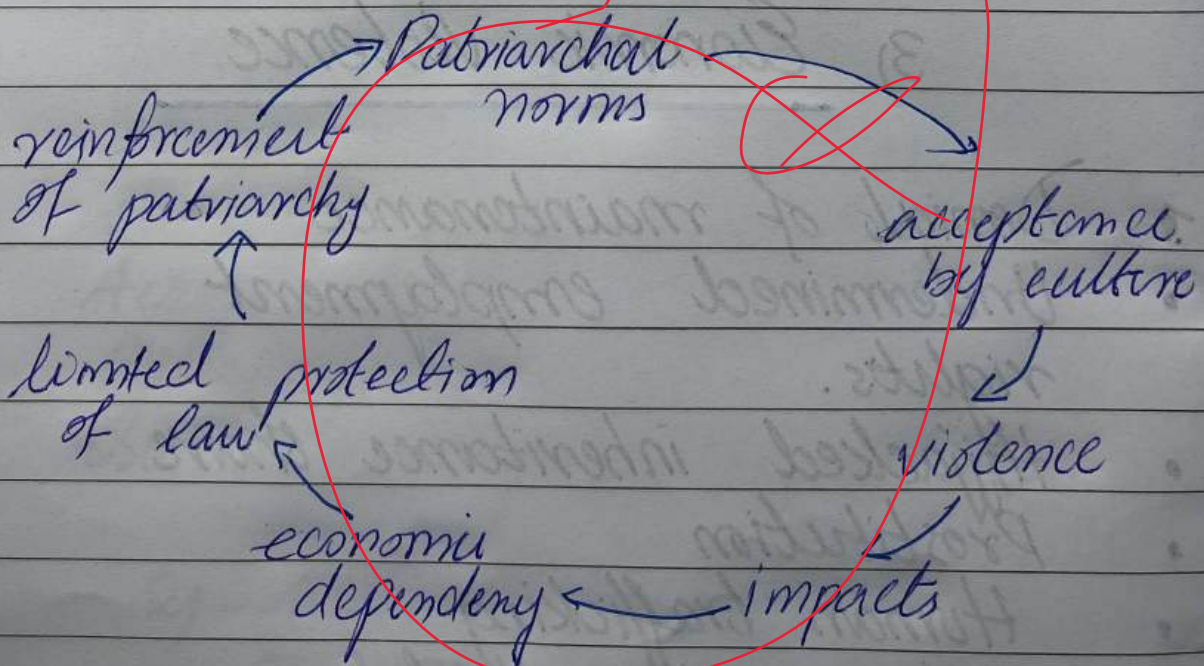 Patriarchal
norms
acceptance
by culture
violence
impacts
economic
dependeny
limited protection
of law
reinforcement
of patriarchy